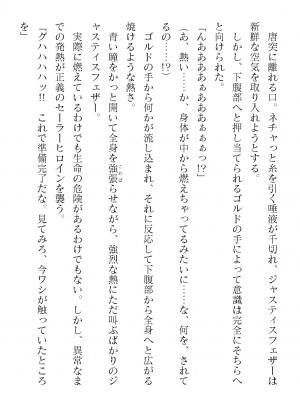 唐突に離れる口。ネチャっと糸を引く唾液が千切れ、ジャスティスフェザーは
新鮮な空気を取り入れようとする。
しかし、下腹部へと押し当てられるゴルドの手によって意識は完全にそちらへ
と向けられた。
「んああああぁぁああぁぁぁっ!?」
(あ、熱い……か、身体が中から燃えちゃってるみたいに……な、何を、されて
るの……!?)
ゴルドの手から何かが流し込まれ、それに反応して下腹部から全身へと広がる
焼けるような熱さ。
青い瞳をかっと開いて全身を強張らせながら、強烈な熱にただ叫ぶばかりのジ
ャスティスフェザー。
実際に燃えているわけでも生命の危険があるわけでもない。しかし、異常なま
での発熱が正義のセーラーヒロインを襲う。
「グハハハハッ!! これで準備完了だな。見てみろ、今ワシが触っていたところ
を」